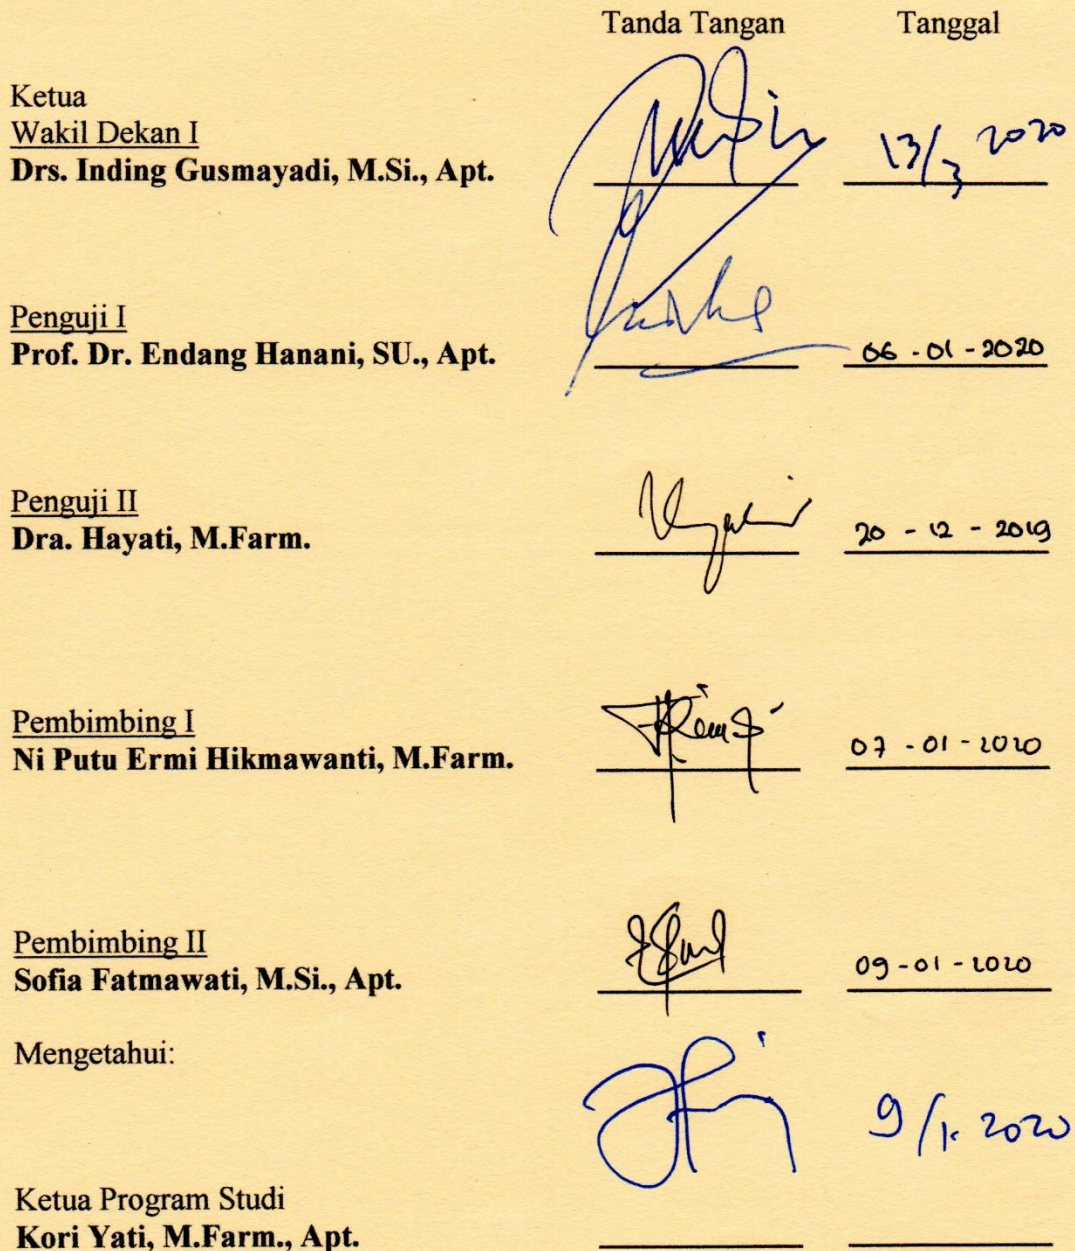 Tanda Tangan Tanggal
Ketua
Wakil Dekan I
Drs. Inding Gusmayadi, M.Si., Apt. 13/3 2020
Penguji I
Prof. Dr. Endang Hanani, SU., Apt. 06 - 01 - 2020
Penguji II
Dra. Hayati, M.Farm. 20 - 12 - 2019
Pembimbing I
Ni Putu Ermi Hikmawanti, M.Farm. 07 - 01 - 2020
Pembimbing II
Sofia Fatmawati, M.Si., Apt. 09 - 01 - 2020
Mengetahui:
9/1. 2020
Ketua Program Studi
Kori Yati, M.Farm., Apt.